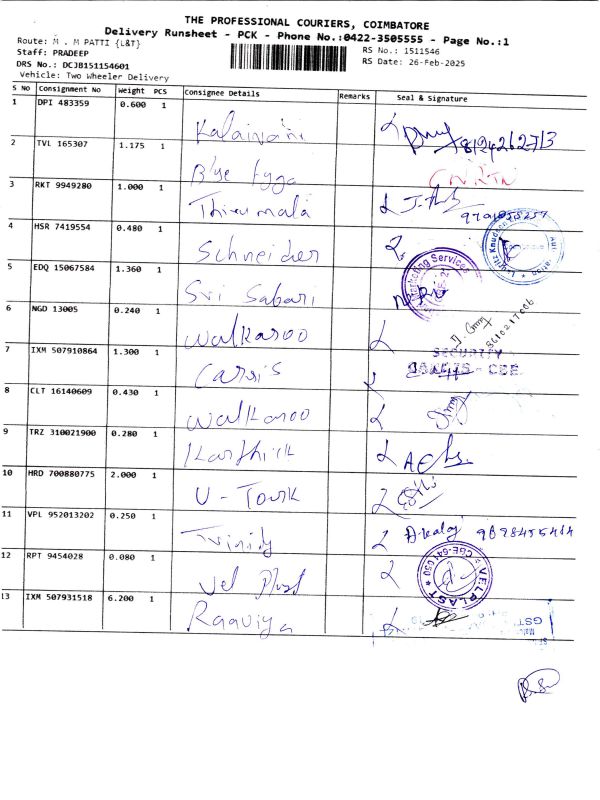 THE PROFESSIONAL COURIERS, COIMBATORE
Delivery Runsheet - PCK - Phone No.:0422-3505555 - Page No.:1
Route: M . M PATTI {L&T}
RS No.: 1511546
Staff: PRADEEP
RS Date: 26-Feb-2025
DRS No.: DCJB151154601
Vehicle: Two Wheeler Delivery
S No Consignment No Weight PCS Consignee Details Remarks Seal & Signature
1 DPI 483359 0.600 1 Kalaivani 8124262713
2 TVL 165307 1.175 1 Blue
3 RKT 9949280 1.000 1 Thirumala
4 HSR 7419554 0.480 1 Schneider
5 EDQ 15067584 1.360 1 Sri Sabari
6 NGD 13005 0.240 1 Walkaroo
7 IXM 507910864 1.300 1 Carris SECURITY
8 CLT 16140609 0.430 1 Walkaroo
9 TRZ 310021900 0.280 1 Karthick
10 HRD 700880775 2.000 1 U - Tork
11 VPL 952013202 0.250 1 Trinity
12 RPT 9454028 0.080 1 Vel Plast VELPLAST CBE-641 050
13 IXM 507931518 6.200 1 Raaviya